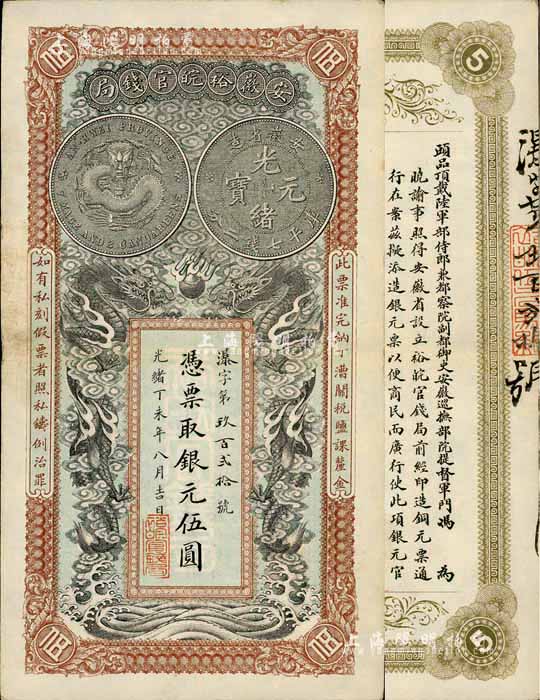 伍
伍
局錢官皖裕徽安
AN-HWEI PROVINCE
7 MACE AND 2 CANDAREENS
造省徽安
光緒元寶
庫平七錢二分
此票准完納丁漕關稅鹽課釐金
如有私刻假票者照私鑄例治罪
漾字第玖百貳拾號
憑票取銀元伍圓
光緒丁未年八月吉日
伍
伍
5
頭品頂戴陸軍部侍郎兼都察院副都御史安徽巡撫部院提督軍門馮 為
曉諭事照得安徽省設立裕皖官錢局前經印造銅元票通
行在案茲擬添造銀元票以便商民而廣行使此項銀元官
號
5
上海陽明拍賣